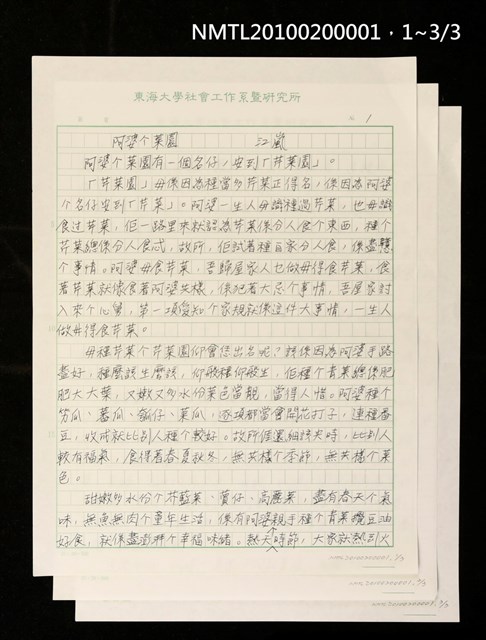 NMTL20100200001，1~3/3
東海大學社會工作系暨研究所
1
阿婆个菜園 江嵐
阿婆个菜園有一個名仔，安到「芹菜園」。
「芹菜園」毋係因為種當多芹菜正得名，係因為阿婆
个名仔安到「芹菜」。阿婆一生人毋識種過芹菜，也毋識
食過芹菜，佢一路里來就認為芹菜係分人食个東西，種个
芹菜總係分人食忒，故所，佢試着種百家分人食，係盡
个事情。阿婆毋食芹菜，吾歸屋家人乜做毋得食芹菜，食
著芹菜就像食著阿婆共樣，係犯著大忌个事情，吾屋家討
入來个心臼，第一項愛知个家規就係這件大事情，一生人
做毋得食芹菜。
毋種芹菜个芹菜園仰會恁出名呢？該係因為阿婆手路
盡好，種麼該生麼該，仰般種仰般生，佢種个青菜總係肥
肥大大葉，又嫩又多水份菜色當靚，當得人惜。阿婆種个
笏瓜、菜瓜，逐項都當會開花打子，連種番
豆，收成就比別人種个較好。故所𠊎還細該央時，比別人
較有福氣，食得著春夏秋冬，無共樣个季節，無共樣个菜
色。
甜嫩多水份个芥藍菜、高麗菜，盡有春天个氣
味，無魚無肉个童年生活，係有阿婆親手種个青菜攪豆油
好食，就係盡澎湃个幸福味緒。熱天時節，大家就熱到火
NMTL20100200001，1/3
NMTL20100200001，2/3
NMTL20100200001，3/3